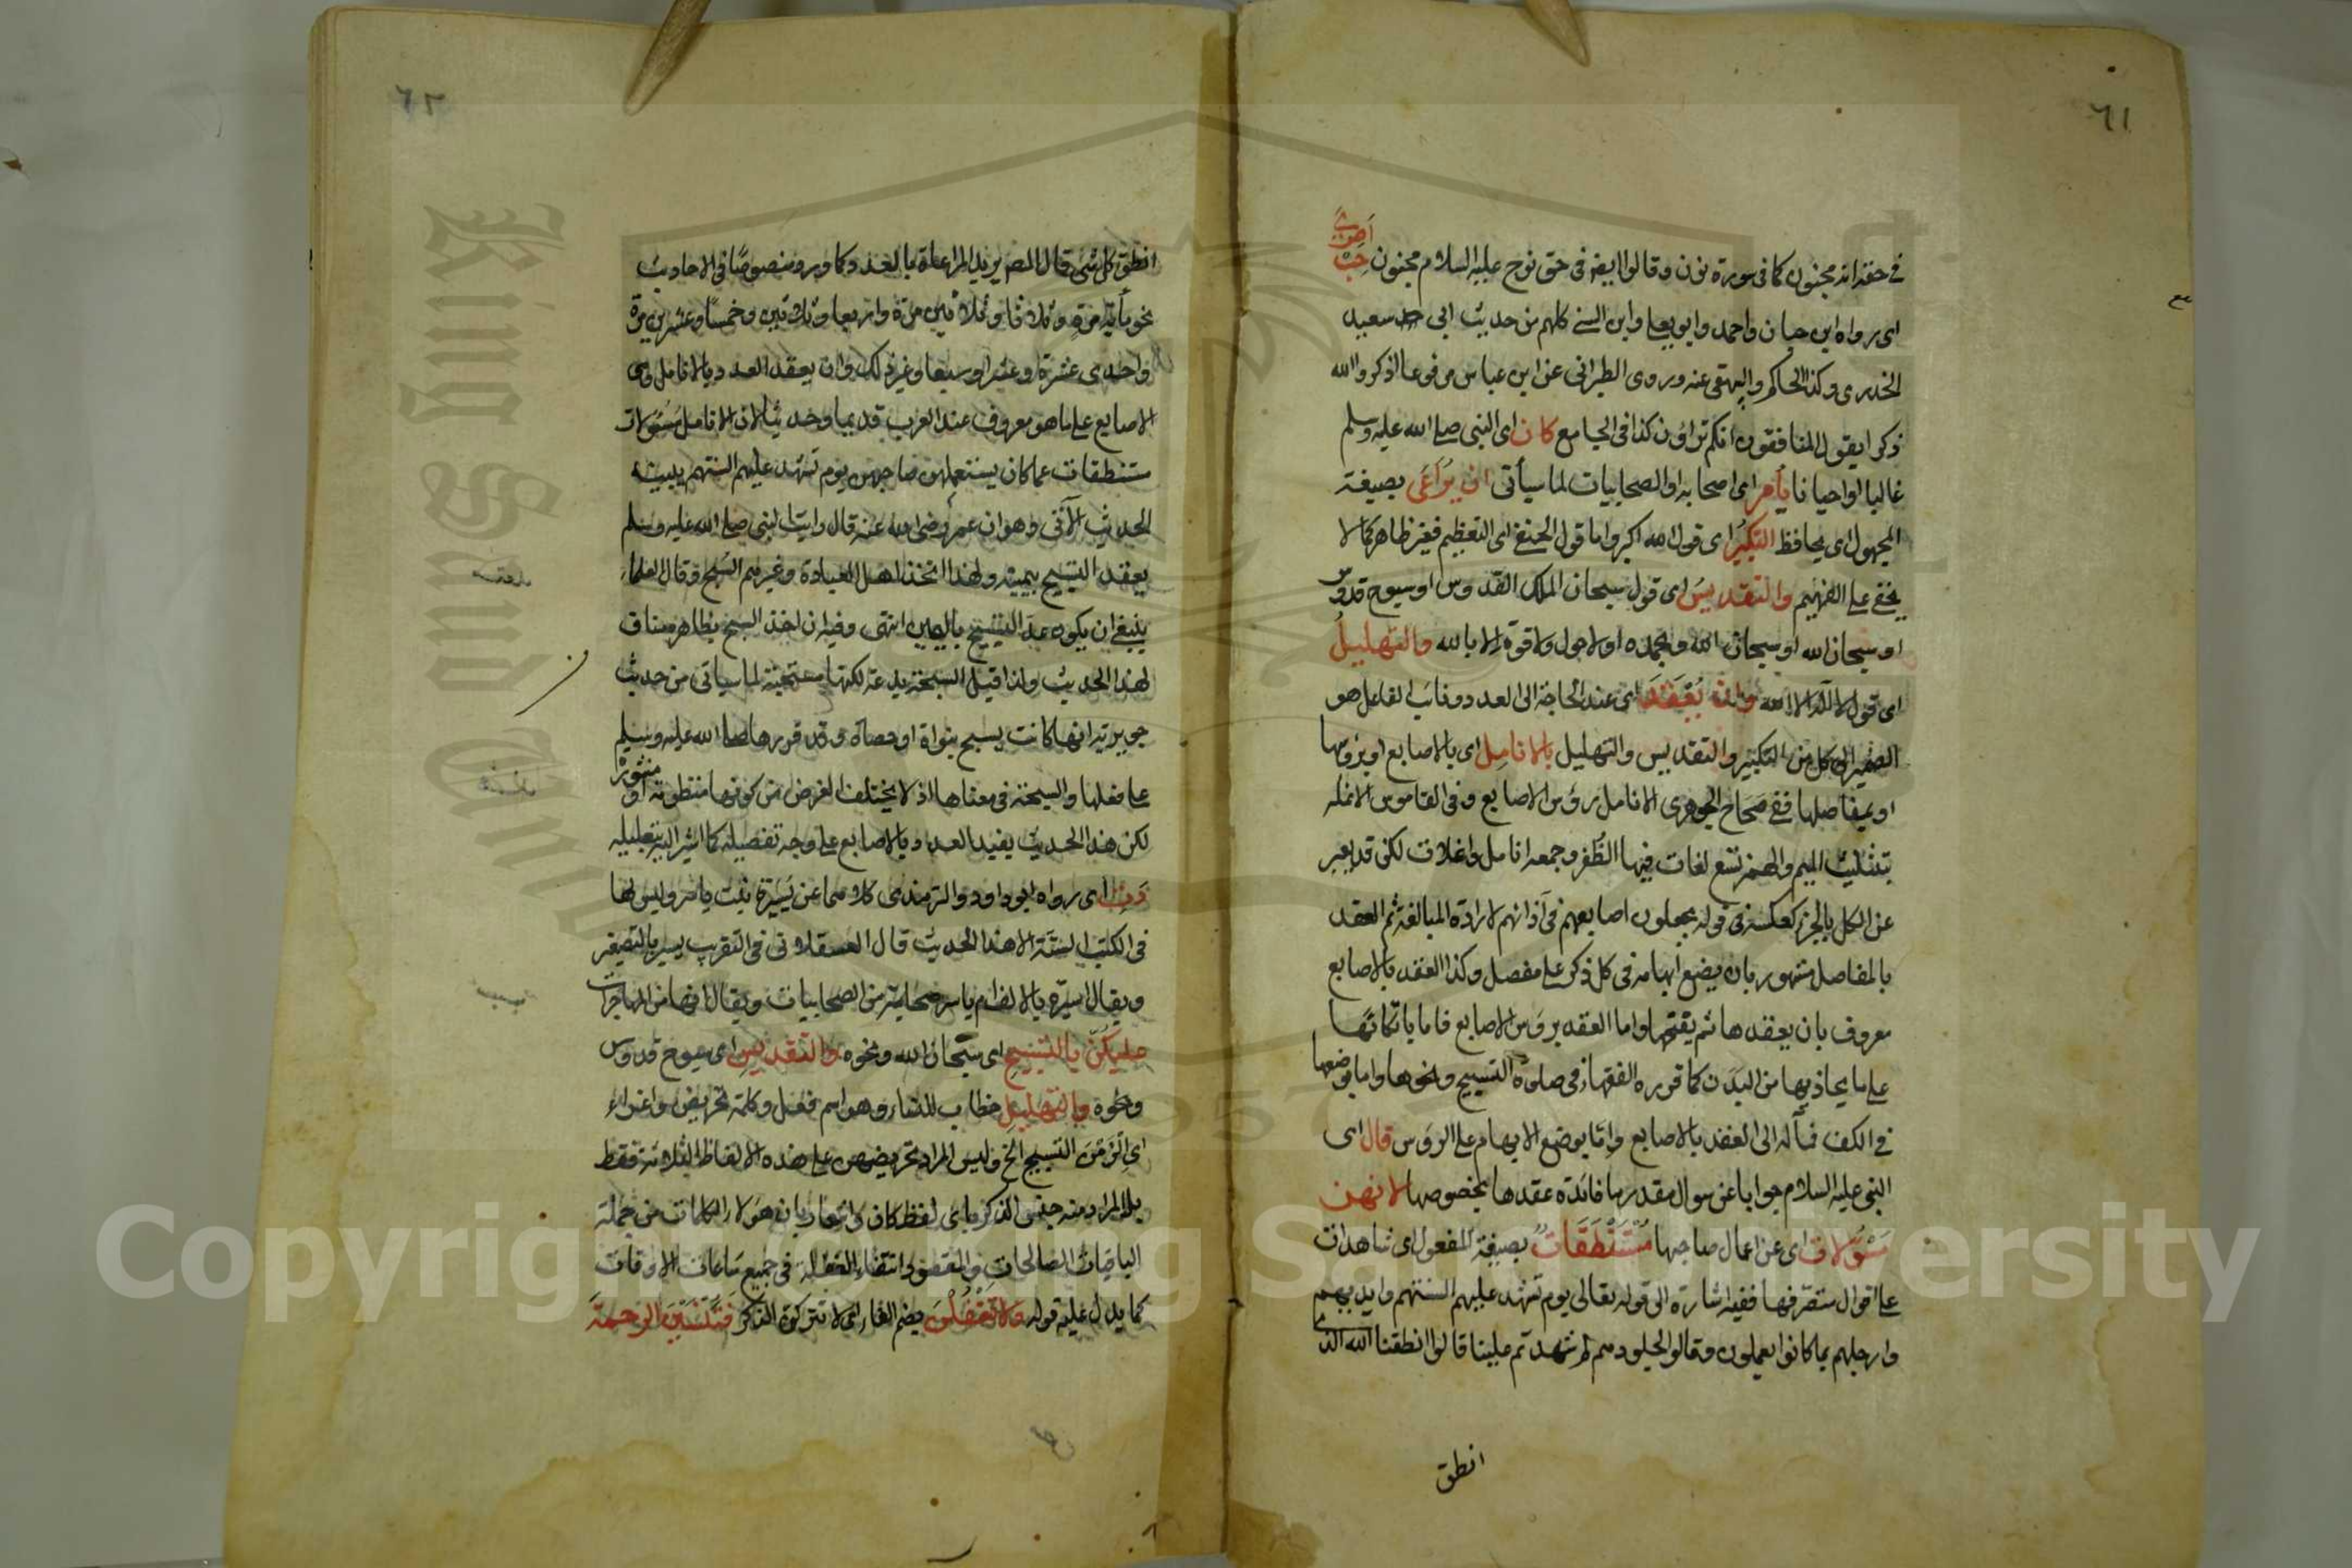 ٦١
أ ص ي
في حقه انه مجنون كما في سورة نون وقالوا ايضا في حق نوح عليه السلام مجنون حب
اى رواه ابن حبان واحمد وابو يعلى وابن السني كلهم من حديث ابي سعيد
الخدرى وكذا الحاكم والبيهقى عنه وروى الطبرانى عن ابن عباس مرفوعا اذكروا الله
ذكرا يقول المنافقون انكم تراؤن كذا في الجامع كان اى النبى صلى الله عليه وسلم
غالبا او احيانا يأمر اى اصحابه او الصحابيات لما سيأتى ان يراعى بصيغة
المجهول اى يحافظ التكبير اى قول الله اكبر واما قول الحنفى اى التعظيم فغير ظاهر كما لا
يخفى على الفهيم والتقديس اى قول سبحان الملك القدوس او سبوح قدوس
او سبحان الله او سبحان الله وبحمده او لا حول ولا قوة الا بالله والتهليل
اى قول لا اله الا الله وان يعقد اى عند الحاجة الى العدد ونائب الفاعل هو
الضمير الى كل من التكبير والتقديس والتهليل بالانامل اى بالاصابع او برؤسها
او بمفاصلها ففى صحاح الجوهرى الانامل رؤس الاصابع وفى القاموس الانملة
بتثليث الميم والهمز تسع لغات فيها الظفر وجمعه انامل وانملات لكن قد يعبر
عن الكل بالجزء كعكسه فى قوله يجعلون اصابعهم فى آذانهم لارادة المبالغة ثم العقد
بالمفاصل مشهور بان يضع ابهامه فى كل ذكر على مفصل وكذا العقد بالاصابع
معروف بان يعقدها ثم يفتحها واما العقد برؤس الاصابع فاما باتكائها
على ما يحاذيها من البدن كما قرره الفقهاء فى صلوة التسبيح ونحوها واما بوضعها
فى الكف فمآله الى العقد بالاصابع واما بوضع الابهام على الرؤس قال اى
النبى عليه السلام جوابا عن سوال مقدر ما فائدة عقدها بخصوصها لانهن
مسؤلات اى عن اعمال صاحبها مستنطقات بصيغة المفعول اى شاهدات
على اقوال متصرفها ففيه اشارة الى قوله تعالى يوم تشهد عليهم السنتهم وايديهم
وارجلهم بما كانوا يعملون وقالوا لجلودهم لم شهدتم علينا قالوا انطقنا الله الذى
انطق
٦٢
انطق كل شئ قال المصم يريد المراعاة بالعدد كما ورد منصوصا فى الاحاديث
نحو مأية مرة وثلاثا وثلاثين مرة واربعا وثلاثين وخمسا وعشرين مرة
واحدى عشرة او عشرا وسبعا وغير ذلك وان يعقد العدد بالانامل وهى
الاصابع على ما هو معروف عند العرب قديما وحديثا لان الانامل مسؤلات
مستنطقات عما كان يستعملهن صاحبهن يوم تشهد عليهم السنتهم يبينه
الحديث الآتى وهو ان عمر رضى الله عنه قال رايت النبى صلى الله عليه وسلم
يعقد التسبيح بيمينه ولهذا اتخذ اهل العبادة وغيرهم السبح وقال العلماء
ينبغى ان يكون عد التسبيح باليمين انتهى وفيه ان اخذ السبح بظاهره مناف
لهذا الحديث ولذا قيل السبحة بدعة لكنها مستحبة لما سياتى من حديث
جويرية انها كانت يسبح بنواة او حصاة وقد قررها صلى الله عليه وسلم
على فعلها والسبحة فى معناها اذ لا يختلف الغرض من كونها منظومة او منثورة
لكن هذا الحديث يفيد العدد بالاصابع على وجه تفصيله كما اشير اليه بتعليله
دت اى رواه ابو داود والترمذى كلاهما عن يسيرة بنت ياسر وليس لها
فى الكتب الستة الا هذا الحديث قال العسقلانى فى التقريب يسيرة بالتصغير
ويقال اسيرة بالالف ام ياسر صحابية من الصحابيات ويقال انها من المهاجرات
عليكن بالتسبيح اى سبحان الله ونحوه والتقديس اى سبوح قدوس
ونحوه والتهليل خطاب للنساء وهو اسم فعل وكلمة تحريض واغراء
اى الزمن التسبيح الخ وليس المراد تحريضهن على هذه الالفاظ الثلاثة فقط
بل المراد منه جنس الذكر باى لفظ كان واشعار بان هؤلاء الكلمات من جملة
الباقيات الصالحات والمقصود انتفاء الغفلة فى جميع ساعات الاوقات
كما يدل عليه قوله ولا تغفلن بضم الفاء اى لا تتركن الذكر فتنسين الرحمة
Copyright © King Saud University
King Saud University
1957